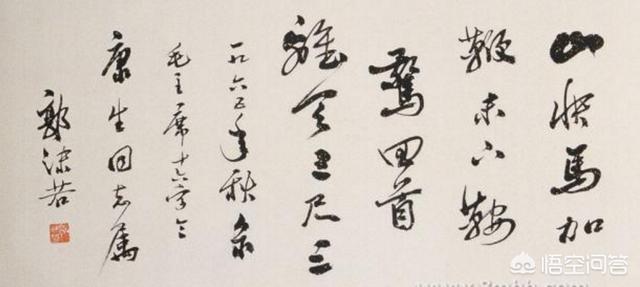 山快馬加
鞭未下鞍
驚回首
離天三尺三
一九六五年秋录
毛主席十六字令
康生同志属
郭沫若
悟空问答